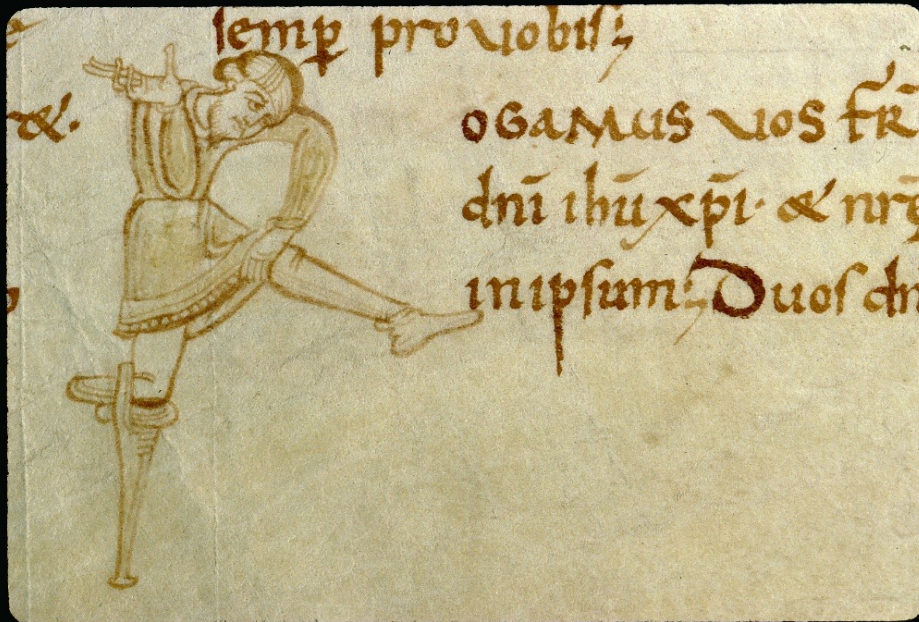 semp̄ pro vobis;
&.
OGAMUS VOS FR̄
dn̄i ihū xp̄i· & nr̄
in ipsum; Duos dn